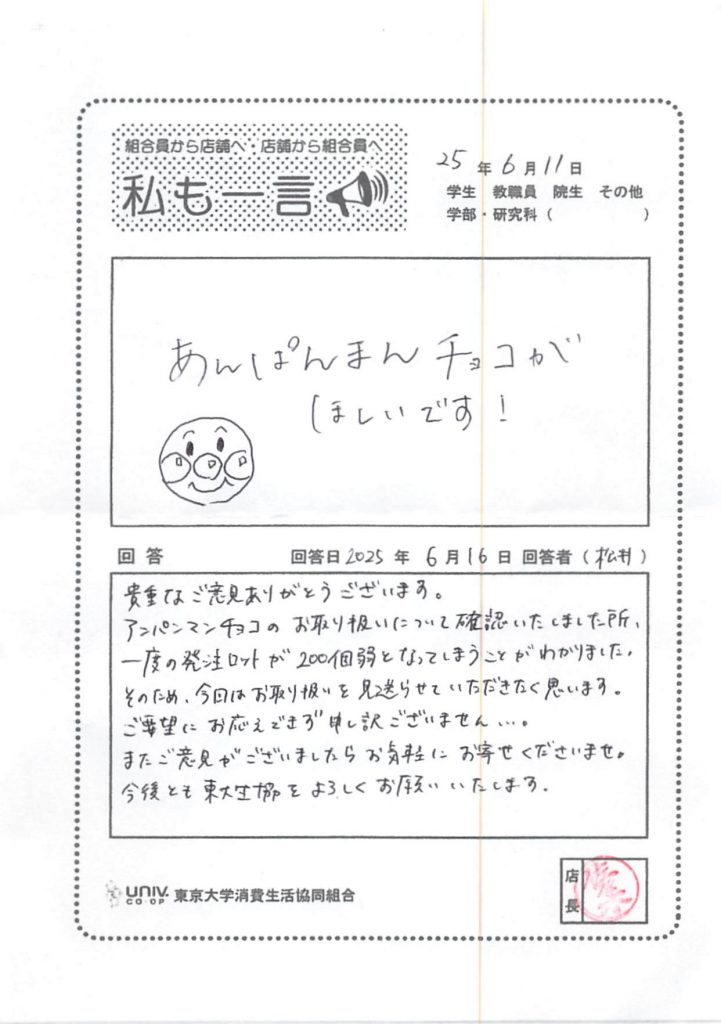 組合員から店舗へ・店舗から組合員へ
私も一言
25年6月11日
学生 教職員 院生 その他
学部・研究科( )
あんぱんまんチョコが
ほしいです!
回答 回答日2025年6月16日 回答者(松井)
貴重なご意見ありがとうございます。
アンパンマンチョコのお取り扱いについて確認いたしました所、
一度の発注ロットが200個弱となってしまうことがわかりました。
そのため、今回はお取り扱いを見送らせていただきたく思います。
ご要望にお応えできず申し訳ございません…。
またご意見がございましたらお気軽にお寄せくださいませ。
今後とも東大生協をよろしくお願いいたします。
UNIV. CO-OP 東京大学消費生活協同組合
店長